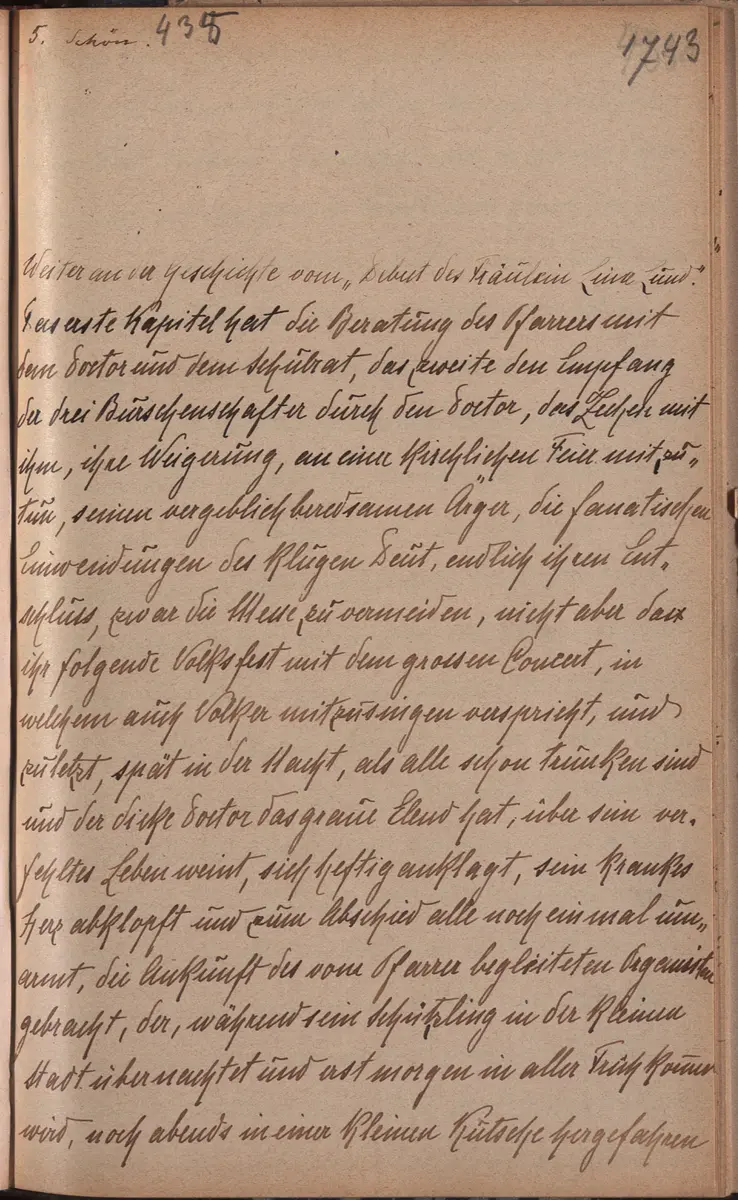 5. Schön. 435
1743
Weiter an der Geschichte vom „Debut des Fräulein Lina Lund".
Das erste Kapitel hat die Beratung des Pfarrers mit
dem Doctor und dem Schulrat, das zweite den Empfang
der drei Burschenschafter durch den Doctor, das Zechen mit
ihm, ihre Weigerung, an einer kirchlichen Feier mitzu„
tun, seinen vergeblich beredsamen Ärger, die fanatischen
Einwendungen des klugen Deut, endlich ihren Ent„
schluss, zwar die Messe zu vermeiden, nicht aber das
ihr folgende Volksfest mit dem grossen Concert, in
welchem auch Volker mitzusingen verspricht, und
zuletzt, spät in der Nacht, als alle schon trunken sind
und der dicke Doctor das graue Elend hat, über sein ver„
fehltes Leben weint, sich heftig anklagt, sein krankes
Herz abklopft und zum Abschied alle noch einmal um„
armt, die Ankunft des vom Pfarrer begleiteten Organisten
gebracht, der, während sein Schützling in der kleinen
Stadt übernachtet und erst morgen in aller Früh kommen
wird, noch abends in einer kleinen Kutsche hergefahren